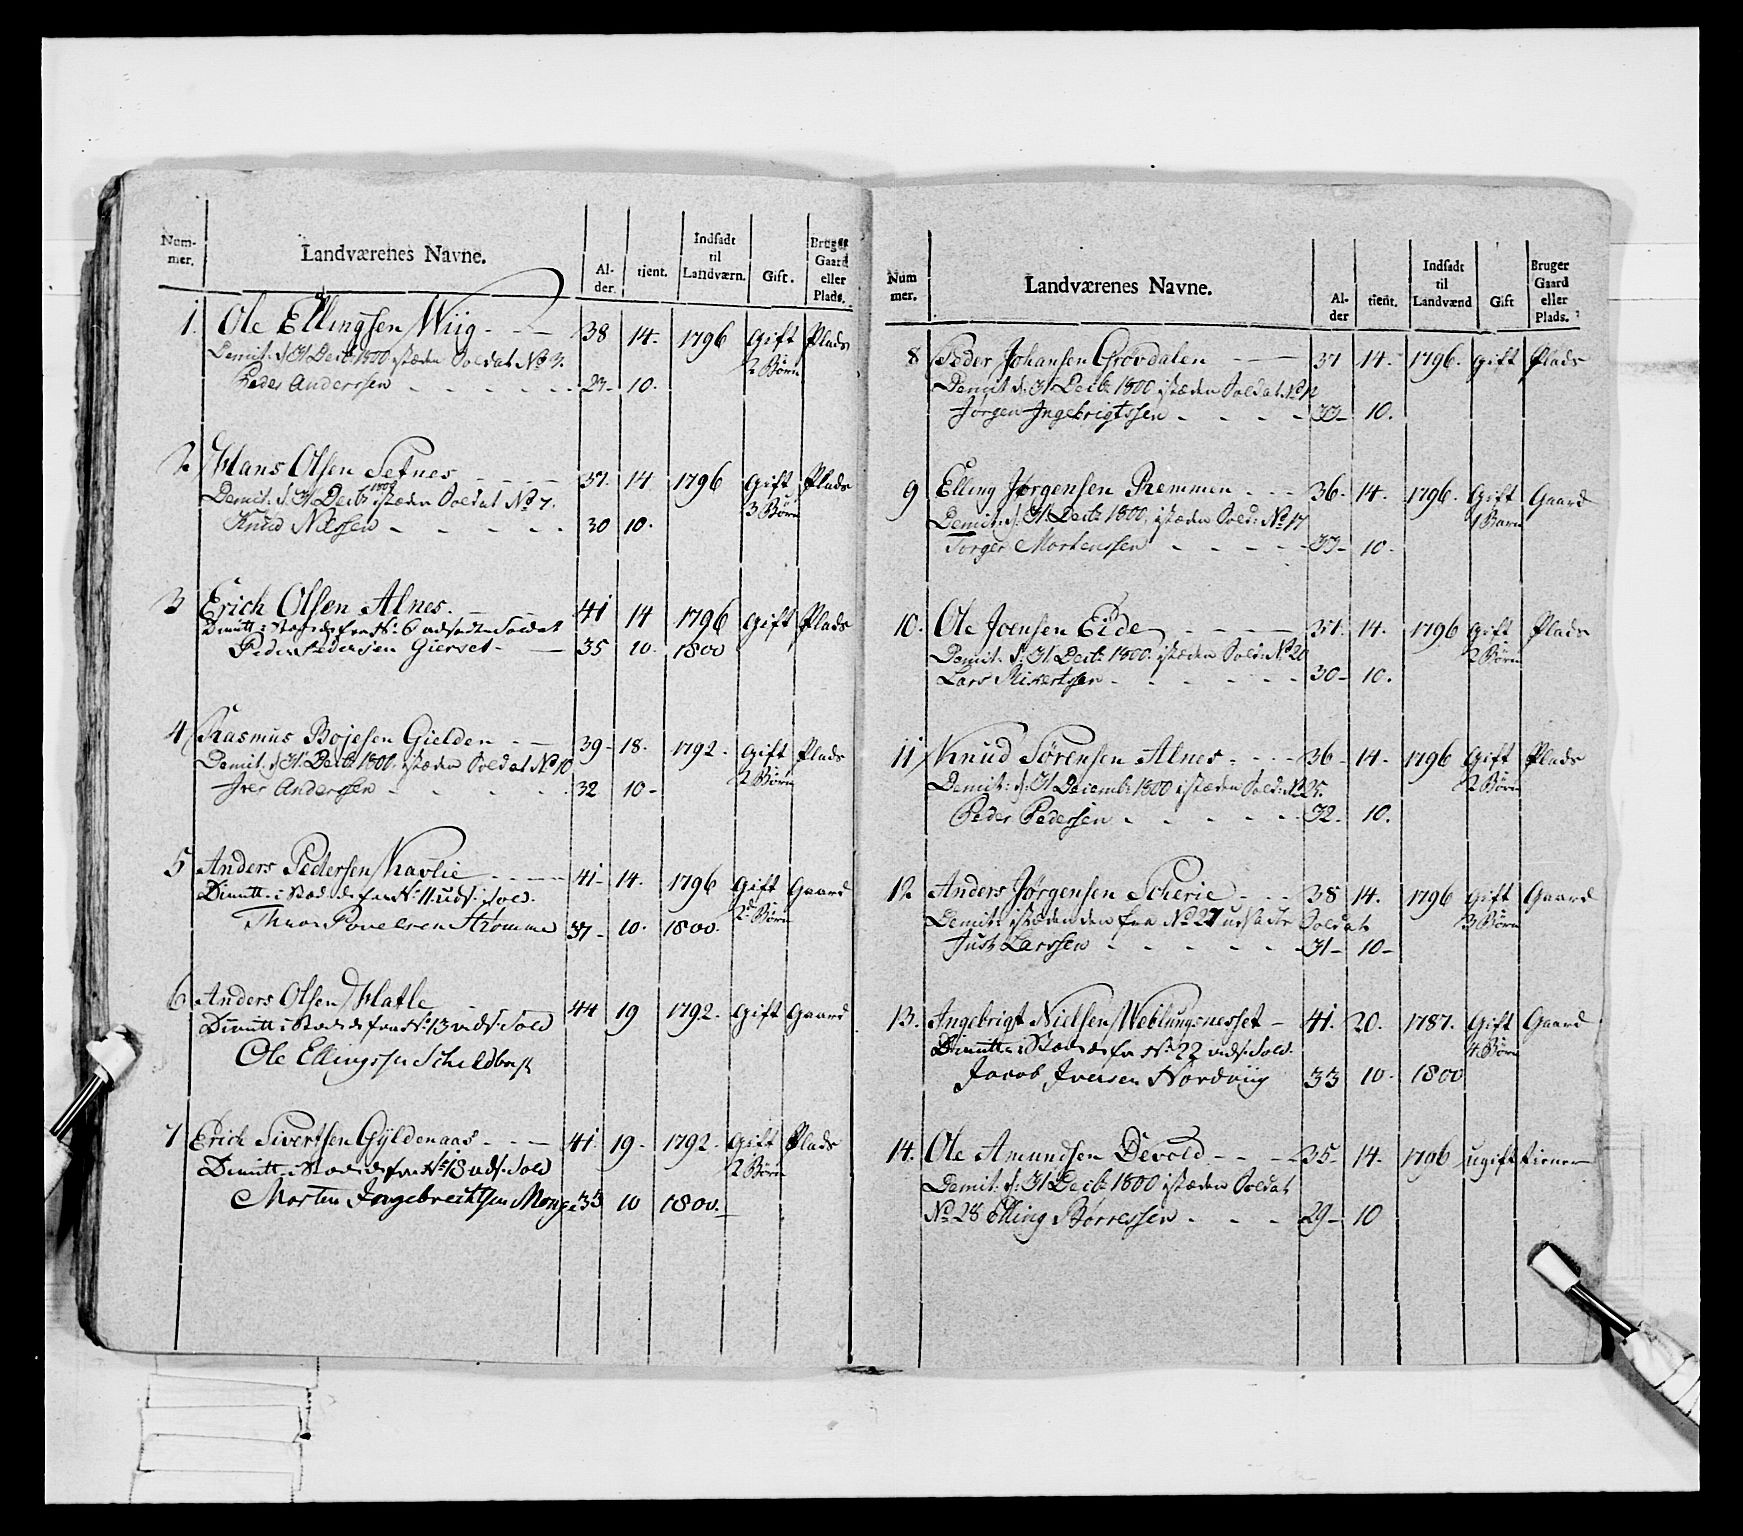 Num- mer. Landværenes Navne. Al- der. tient. Indsadt til Landværn. Gift. Bruger Gaard eller Plads.
1. Ole Ellingsen Wiig 38 14 1796 Gift Plads
Demit: d: 31 Decbr 1800 istæden Soldat No 3. 2 Børn
Peder Anderssen 29 10.
2 Hans Olsen Setnes 37 14 1796 Gift Plads
Demit: d: 31 Decbr 1800 istæden Soldat No 7. 3 Børn
Knud Nilssen 30 10.
3 Erich Olsen Alnes. 41 14 1796 Gift Plads
Dimitt: i stæde fra No 6 udsadte Soldat
Peder Pedersen Gierset 35 10. 1800
4 Rasmus Bojesen Gielden 39 18. 1792. Gift Plads
Demit: d: 31 Decbr 1800. istæden Soldat No 10 2 Børn
Iver Anderssen 32 10
5 Anders Pedersen Kavlie 41 14. 1796 Gift Gaard
Dimitt: i Stæde fra No 11 uds: Sold. 2 Børn
Povelsen Stromme 37 10. 1800.
6 Anders Olsen Hatle 44 19 1792. Gift Gaard
Dimitt: i Stæde fra No 13 uds: Sold
Ole Ellingssen
7 Erich Sivertsen Gyldenaas 41. 19 1792. Gift Plads
Dimitt: i Stæde fra No 18 uds: Sold 2 Børn
Morten Ingebrecktsen Monge 35 10 1800.
Num mer. Landværenes Navne. Al- der tient. Indsadt til Landværnd Gift Bruger Gaard eller Plads.
8 Peder Johansen Grövdalen 37 14. 1796. Gift Plads
Demit d: 31 Decbr 1800 istæden Soldat No 12
Jørgen Ingebrigtssen 33 10.
9 Elling Jørgensen Remmen 36 14. 1796. Gift Gaard
Demit: d: 31 Decbr 1800. istæden Sold: No 17 1 Barn
Torger Mortenssen 33 10.
10. Ole Joensen Eide 37. 14. 1796 Gift Plads
Demit: d: 31 Decbr 1800. istæden Sold: No 20 2 Børn
Lars 30 10.
11 Knud Sørensen Alnes 36 14. 1796 Gift Plads
Demit: d: 31 Decembr 1800 istæden Sold: No 25. 2 Børn
Peder Pedersen 32. 10.
12 Anders Jørgensen Scherie 38 14. 1796 Gift Gaard
Demit: istæden den fra No 27 udsadte Soldat 3 Børn
Just Larssen 31 10
13. Ingebrigt Nielsen Weblungsnesset 41. 20. 1787. Gift Gaard
Dimitt: i Stæde fra No 22 uds: Sold. 4 Børn
Jacob Iversen Nordviig 33 10 1800
14. Ole Amundsen Devold 35 14. 1796 ugift tiener
Demit: d: 31 Decbr 1800 istæden Soldat
No 28 Elling Børressen 29 10